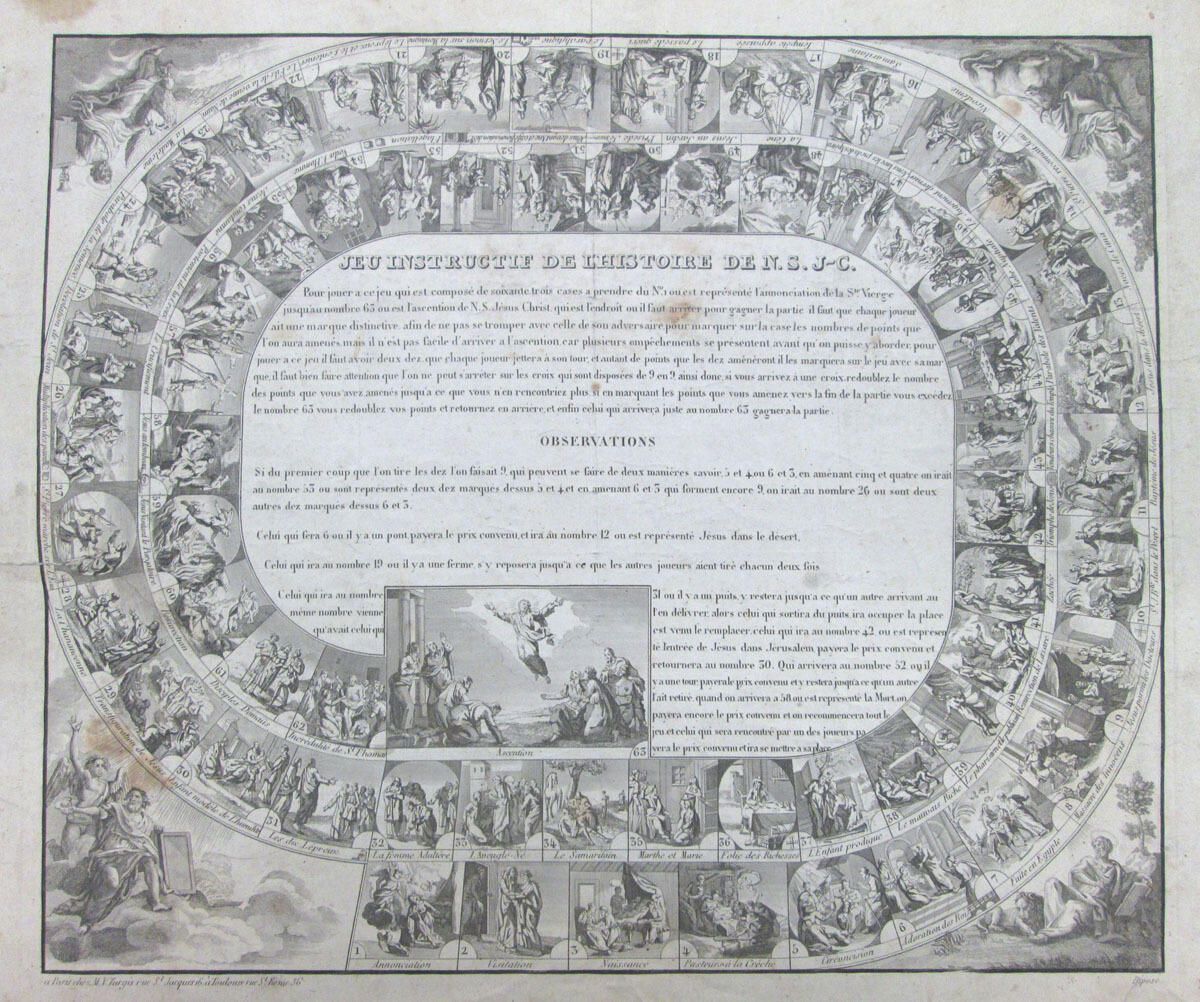 JEU INSTRUCTIF DE L'HISTOIRE DE N. S. J-C.
Pour jouer a ce jeu qui est composé de soixante trois cases a prendre du No. 1 ou est représenté l'annonciation de la Ste Vierge
jusqu'au nombre 63 ou est l'ascention de N. S. Jésus Christ, qui est l'endroit ou il faut arriver pour gagner la partie il faut que chaque joueur
ait une marque distinctive, afin de ne pas se tromper avec celle de son adversaire pour marquer sur la case les nombres de points que
l'on aura amenés, mais il n'est pas facile d'arriver a l'ascention, car plusieurs empêchements se présentent avant qu'on puisse y aborder, pour
jouer a ce jeu il faut avoir deux dez, que chaque joueur jettera à son tour, et autant de points que les dez amèneront il les marquera sur le jeu avec sa mar
que, il faut bien faire attention que l'on ne peut s'arrêter sur les croix qui sont disposées de 9 en 9, ainsi donc, si vous arrivez à une croix, redoublez le nombre
des points que vous avez amenés jusqu'a ce que vous n'en rencontriez plus, si en marquant les points que vous amenez vers la fin de la partie vous excédez
le nombre 63 vous redoublez vos points et retournez en arrière, et enfin celui qui arrivera juste au nombre 63 gagnera la partie.
OBSERVATIONS
Si du premier coup que l'on tire les dez l'on faisait 9, qui peuvent se faire de deux manières savoir, 5 et 4 ou 6 et 3, en amènant cinq et quatre on irait
au nombre 53 ou sont représentés deux dez marqués dessus 5 et 4 et en amenant 6 et 3 qui forment encore 9, on irait au nombre 26 ou sont deux
autres dez marqués dessus 6 et 3.
Celui qui fera 6 ou il y a un pont, payera le prix convenu, et ira au nombre 12 ou est représenté Jésus dans le désert.
Celui qui ira au nombre 19 ou il y a une ferme, s'y reposera jusqu'a ce que les autres joueurs aient tiré chacun deux fois
Celui qui ira au nombre 31 ou il y a un puits, y restera jusqu'a ce qu'un autre arrivant au
même nombre vienne l'en délivrer, alors celui qui sortira du puits, ira occuper la place
qu'avait celui qui est venu le remplacer, celui qui ira au nombre 42 ou est représen
té l'entrée de Jésus dans Jérusalem, payera le prix convenu et
retournera au nombre 30. Qui arrivera au nombre 52 ou il
y a une tour, payera le prix convenu et y restera jusqu'a ce qu'un autre
l'ait retiré, quand on arrivera a 58 ou est representé la Mort, on
payera encore le prix convenu et on recommencera tout le
jeu, et celui qui sera rencontré par un des joueurs, pa
yera le prix convenu et ira se mettre a sa place.
1 Annonciation
2 Visitation
3 Naissance
4 Pasteurs à la Crèche
5 Circoncision
6 Adoration des Rois
7 Fuite en Egypte
8 Massacre des Innocens
9 Jésus parmi les docteurs
10 St. J. Bte. dans le Désert
11 Baptême de Jésus
12 Jésus dans le désert
13
14
15 Nicodème
16 Samaritaine
17 Tempête appaisée
18 Le possédé guéri
19 Le paralytique
20 Le Sermon sur la Montagne
21
22
23 La Madeleine
24
25
26
27
28 La Chananéenne
29 Transfiguration de Jésus
30 Enfant modèle de l'humilité
31 Les dix Lépreux
32 La femme Adultère
33 L'Aveugle-Né
34 Le Samaritain
35 Marthe et Marie
36 Folie des Richesses
37 L'Enfant prodigue
38 Le mauvais Riche
39
40
41 Zachée
42
43
44 Parabole des Talens
45
46
47
48 La Cène
49 Jésus au Jardin
50
51
52
53 Flagellation
54 Voila l'Homme
55
56
57
58
59
60
61 Disciples D'emaüs
62 Incrédulité de St Thomas
Ascention 63
a Paris chez M. V. Turgis rue St. Jacques 16, à Toulouse rue St. Rome 36
Déposé